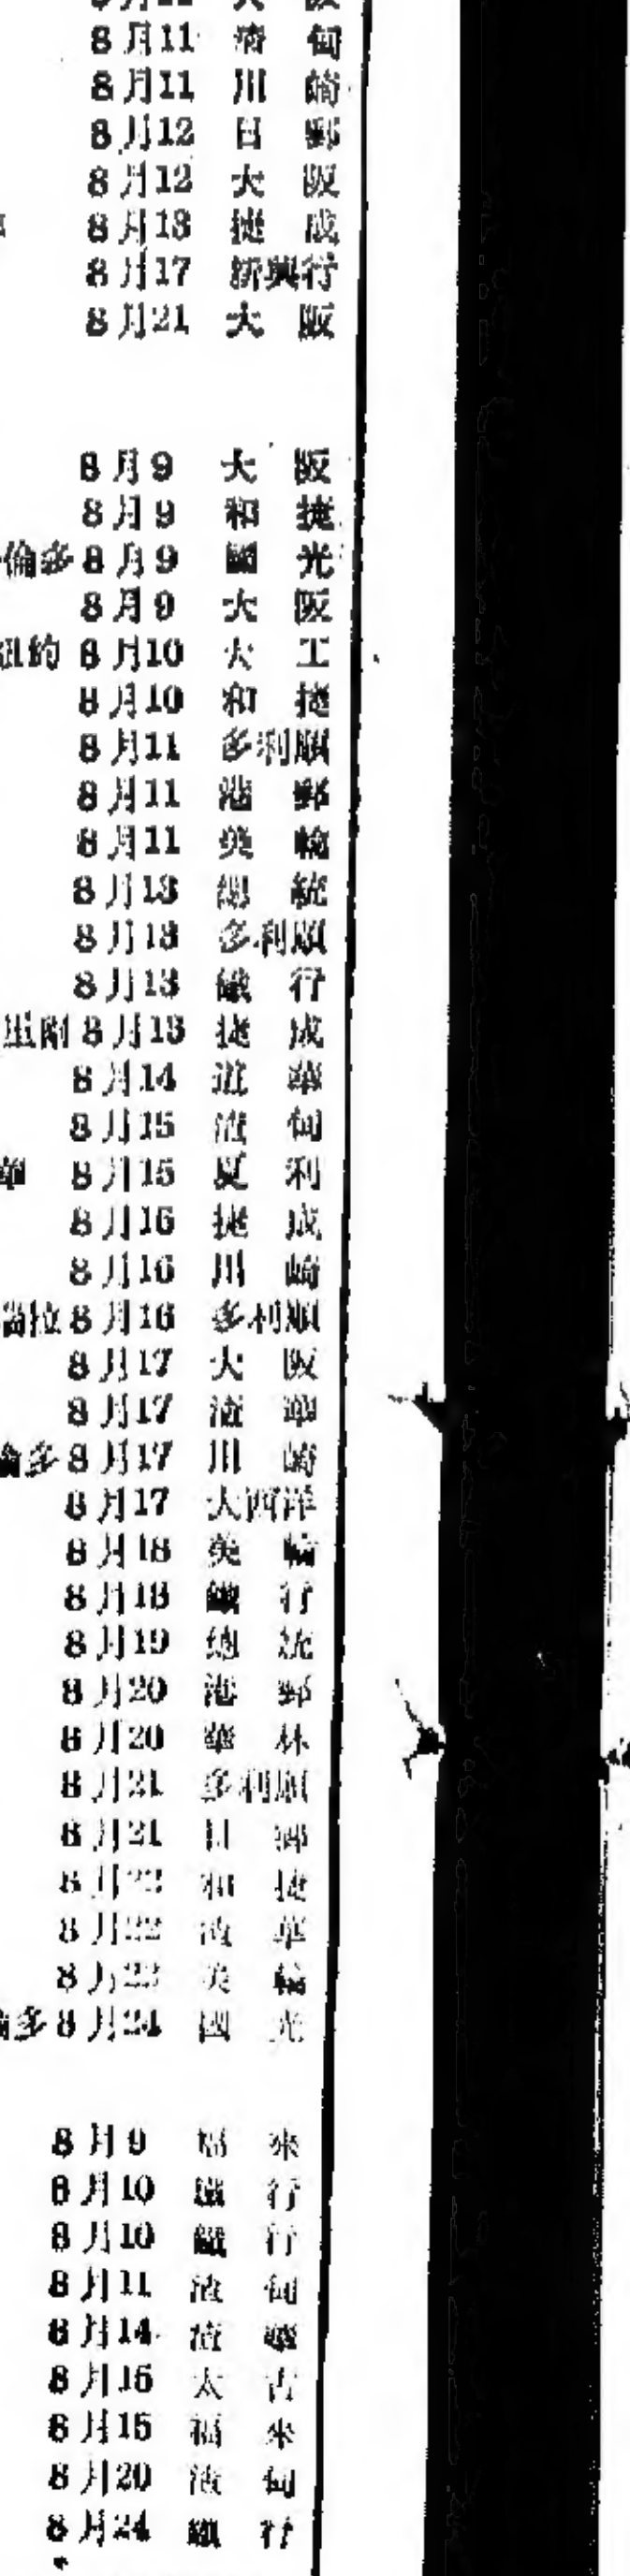 大 阪
8月11 渣 甸
8月11 川 崎
8月12 日 郵
8月12 大 阪
8月13 捷 成
8月17 新興行
8月21 大 阪
8月9 大 阪
8月9 和 捷
倫多 8月9 國 光
8月9 大 阪
紐約 8月10 大 工
8月10 和 捷
8月11 多利順
8月11 港 郵
8月11 美 輪
8月13 總 統
8月13 多利順
8月13 鐵 行
8月13 捷 成
8月14 道 華
8月15 渣 甸
8月15 夏 利
8月16 捷 成
8月16 川 崎
8月16 多利順
8月17 大 阪
8月17 渣 華
多 8月17 川 崎
8月17 大西洋
8月18 美 輪
8月18 鐵 行
8月19 總 統
8月20 港 郵
8月20 華 林
8月21 多利順
8月21 日 郵
8月22 和 捷
8月22 渣 華
8月 美 輪
多 8月24 國 光
8月9 福 來
8月10 鐵 行
8月10 鐵 行
8月11 渣 甸
8月14 渣 華
8月15 太 古
8月15 福 來
8月20 渣 甸
8月24 鐵 行